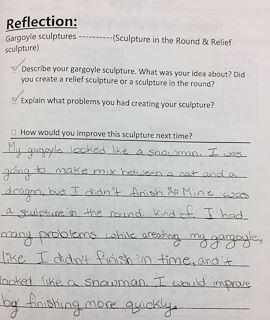 Reflection:
Gargoyle sculptures -----------(Sculpture in the Round & Relief
sculpture)
Describe your gargoyle sculpture. What was your idea about? Did
you create a relief sculpture or a sculpture in the round?
Explain what problems you had creating your sculpture?
How would you improve this sculpture next time?
My gargoyle looked like a snowman. I was
going to make mix between a cat and a
dragon, but I didn't finish. Mine was
a sculpture in the round.. kind of. I had
many problems while creating my gargoyle,
like I didn't finish in time, and it
looked like a snowman. I would improve
by finishing more quickly.